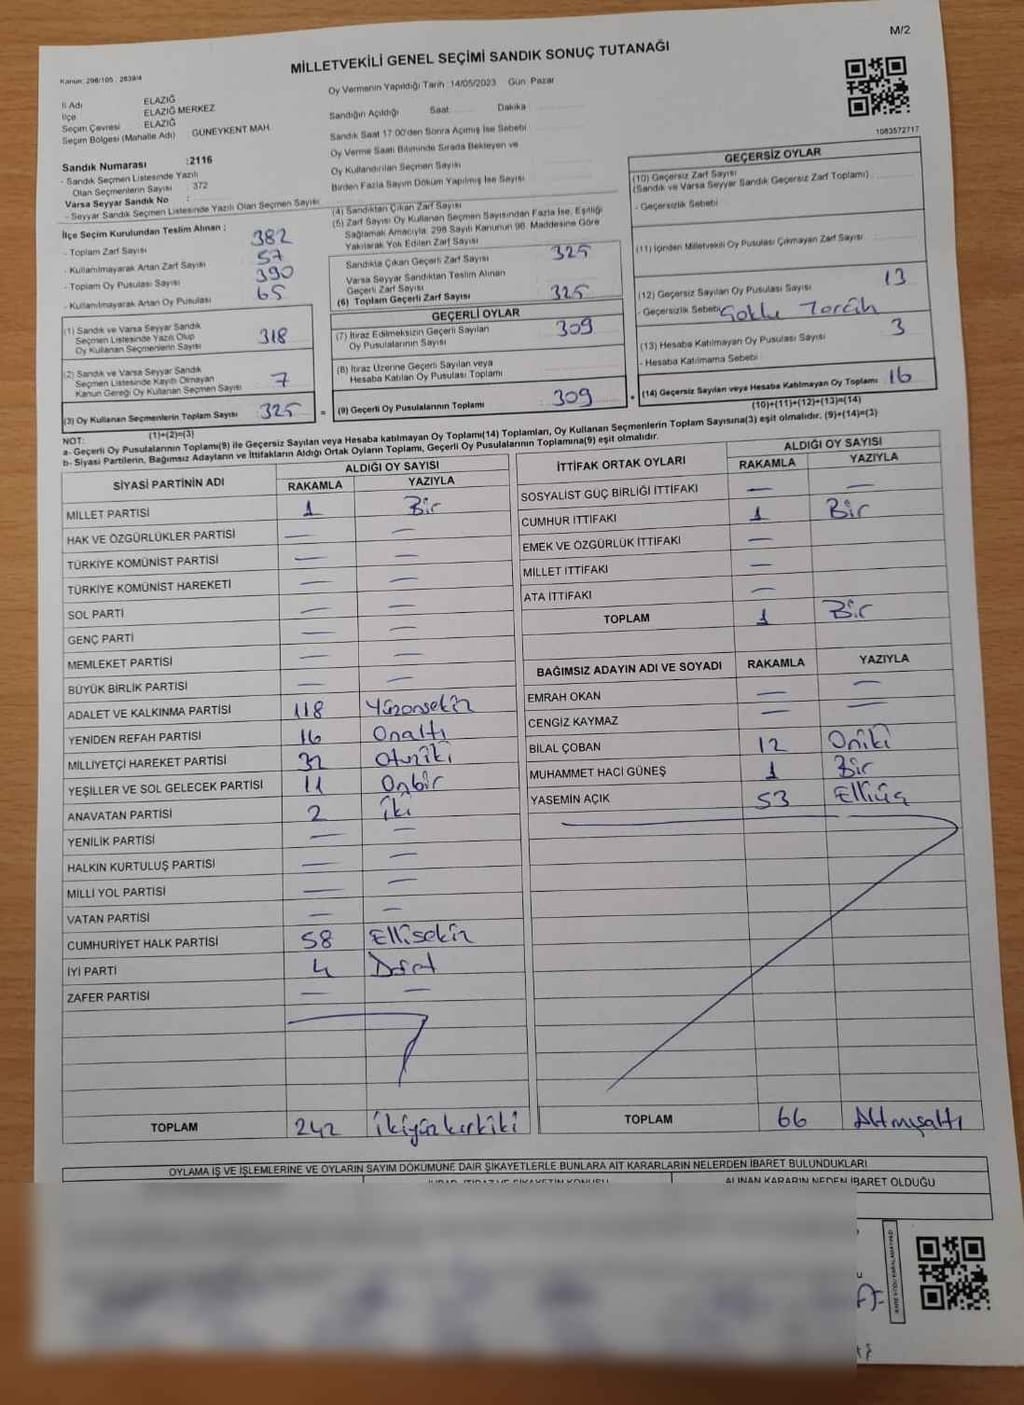 M/2
MİLLETVEKİLİ GENEL SEÇİMİ SANDIK SONUÇ TUTANAĞI
Kanun: 298/105 : 2839/4
İl Adı ELAZIĞ
İlçe ELAZIĞ MERKEZ
Seçim Çevresi ELAZIĞ
Seçim Bölgesi (Mahalle Adı) GÜNEYKENT MAH.
Sandık Numarası :2116
- Sandık Seçmen Listesinde Yazılı
Olan Seçmenlerin Sayısı : 372
Varsa Seyyar Sandık No :
- Seyyar Sandık Seçmen Listesinde Yazılı Olan Seçmen Sayısı
Oy Vermenin Yapıldığı Tarih :14/05/2023 Gün: Pazar
Sandığın Açıldığı Saat Dakika
Sandık Saat 17:00'den Sonra Açımış İse Sebebi
Oy Verme Saati Bitiminde Sırada Bekleyen ve
Oy Kullandırılan Seçmen Sayısı
Birden Fazla Sayım Döküm Yapılmış İse Sayısı
1083572717
İlçe Seçim Kurulundan Teslim Alınan :
- Toplam Zarf Sayısı 382
- Kullanılmayarak Artan Zarf Sayısı 57
- Toplam Oy Pusulası Sayısı 390
- Kullanılmayarak Artan Oy Pusulası 65
(1) Sandık ve Varsa Seyyar Sandık
Seçmen Listesinde Yazılı Olup
Oy Kullanan Seçmenlerin Sayısı 318
(2) Sandık ve Varsa Seyyar Sandık
Seçmen Listesinde Kayıtlı Olmayan
Kanun Gereği Oy Kullanan Seçmen Sayısı 7
(3) Oy Kullanan Seçmenlerin Toplam Sayısı 325 =
(1)+(2)=(3)
(4) Sandıktan Çıkan Zarf Sayısı
(5) Zarf Sayısı Oy Kullanan Seçmen Sayısından Fazla İse, Eşitliği
Sağlamak Amacıyla, 298 Sayılı Kanunun 98. Maddesine Göre
Yakılarak Yok Edilen Zarf Sayısı
Sandıkta Çıkan Geçerli Zarf Sayısı 325
Varsa Seyyar Sandıktan Teslim Alınan
Geçerli Zarf Sayısı
(6) Toplam Geçerli Zarf Sayısı 325
GEÇERLİ OYLAR
(7) İtiraz Edilmeksizin Geçerli Sayılan
Oy Pusulalarının Sayısı 309
(8) İtiraz Üzerine Geçerli Sayılan veya
Hesaba Katılan Oy Pusulası Toplamı
(9) Geçerli Oy Pusulalarının Toplamı 309 +
GEÇERSİZ OYLAR
(10) Geçersiz Zarf Sayısı
(Sandık ve Varsa Seyyar Sandık Geçersiz Zarf Toplamı)
- Geçersizlik Sebebi
(11) İçinden Milletvekili Oy Pusulası Çıkmayan Zarf Sayısı
(12) Geçersiz Sayılan Oy Pusulası Sayısı 13
- Geçersizlik Sebebi Çoklu Tercih
(13) Hesaba Katılmayan Oy Pusulası Sayısı 3
- Hesaba Katılmama Sebebi
(14) Geçersiz Sayılan veya Hesaba Katılmayan Oy Toplamı 16
(10)+(11)+(12)+(13)=(14)
NOT:
a- Geçerli Oy Pusulalarının Toplamı(9) ile Geçersiz Sayılan veya Hesaba katılmayan Oy Toplamı(14) Toplamları, Oy Kullanan Seçmenlerin Toplam Sayısına(3) eşit olmalıdır. (9)+(14)=(3)
b- Siyasi Partilerin, Bağımsız Adayların ve İttifakların Aldığı Ortak Oyların Toplamı, Geçerli Oy Pusulalarının Toplamına(9) eşit olmalıdır.
SİYASİ PARTİNİN ADI ALDIĞI OY SAYISI
RAKAMLA YAZIYLA
MİLLET PARTİSİ 1 Bir
HAK VE ÖZGÜRLÜKLER PARTİSİ — —
TÜRKİYE KOMÜNİST PARTİSİ — —
TÜRKİYE KOMÜNİST HAREKETİ — —
SOL PARTİ — —
GENÇ PARTİ — —
MEMLEKET PARTİSİ — —
BÜYÜK BİRLİK PARTİSİ — —
ADALET VE KALKINMA PARTİSİ 118 Yüzonsekiz
YENİDEN REFAH PARTİSİ 16 Onaltı
MİLLİYETÇİ HAREKET PARTİSİ 32 Otuziki
YEŞİLLER VE SOL GELECEK PARTİSİ 11 Onbir
ANAVATAN PARTİSİ 2 İki
YENİLİK PARTİSİ — —
HALKIN KURTULUŞ PARTİSİ — —
MİLLİ YOL PARTİSİ — —
VATAN PARTİSİ — —
CUMHURİYET HALK PARTİSİ 58 Ellisekiz
İYİ PARTİ 4 Dört
ZAFER PARTİSİ — —
TOPLAM 242 ikiyüzkırkiki
İTTİFAK ORTAK OYLARI ALDIĞI OY SAYISI
RAKAMLA YAZIYLA
SOSYALİST GÜÇ BİRLİĞİ İTTİFAKI — —
CUMHUR İTTİFAKI 1 Bir
EMEK VE ÖZGÜRLÜK İTTİFAKI —
MİLLET İTTİFAKI —
ATA İTTİFAKI —
TOPLAM 1 Bir
BAĞIMSIZ ADAYIN ADI VE SOYADI RAKAMLA YAZIYLA
EMRAH OKAN — —
CENGİZ KAYMAZ — —
BİLAL ÇOBAN 12 Oniki
MUHAMMET HACI GÜNEŞ 1 Bir
YASEMİN AÇIK 53 Elliüç
TOPLAM 66 Altmışaltı
OYLAMA İŞ VE İŞLEMLERİNE VE OYLARIN SAYIM DÖKÜMÜNE DAİR ŞİKAYETLERLE BUNLARA AİT KARARLARIN NELERDEN İBARET BULUNDUKLARI
ALINAN KARARIN NEDEN İBARET OLDUĞU